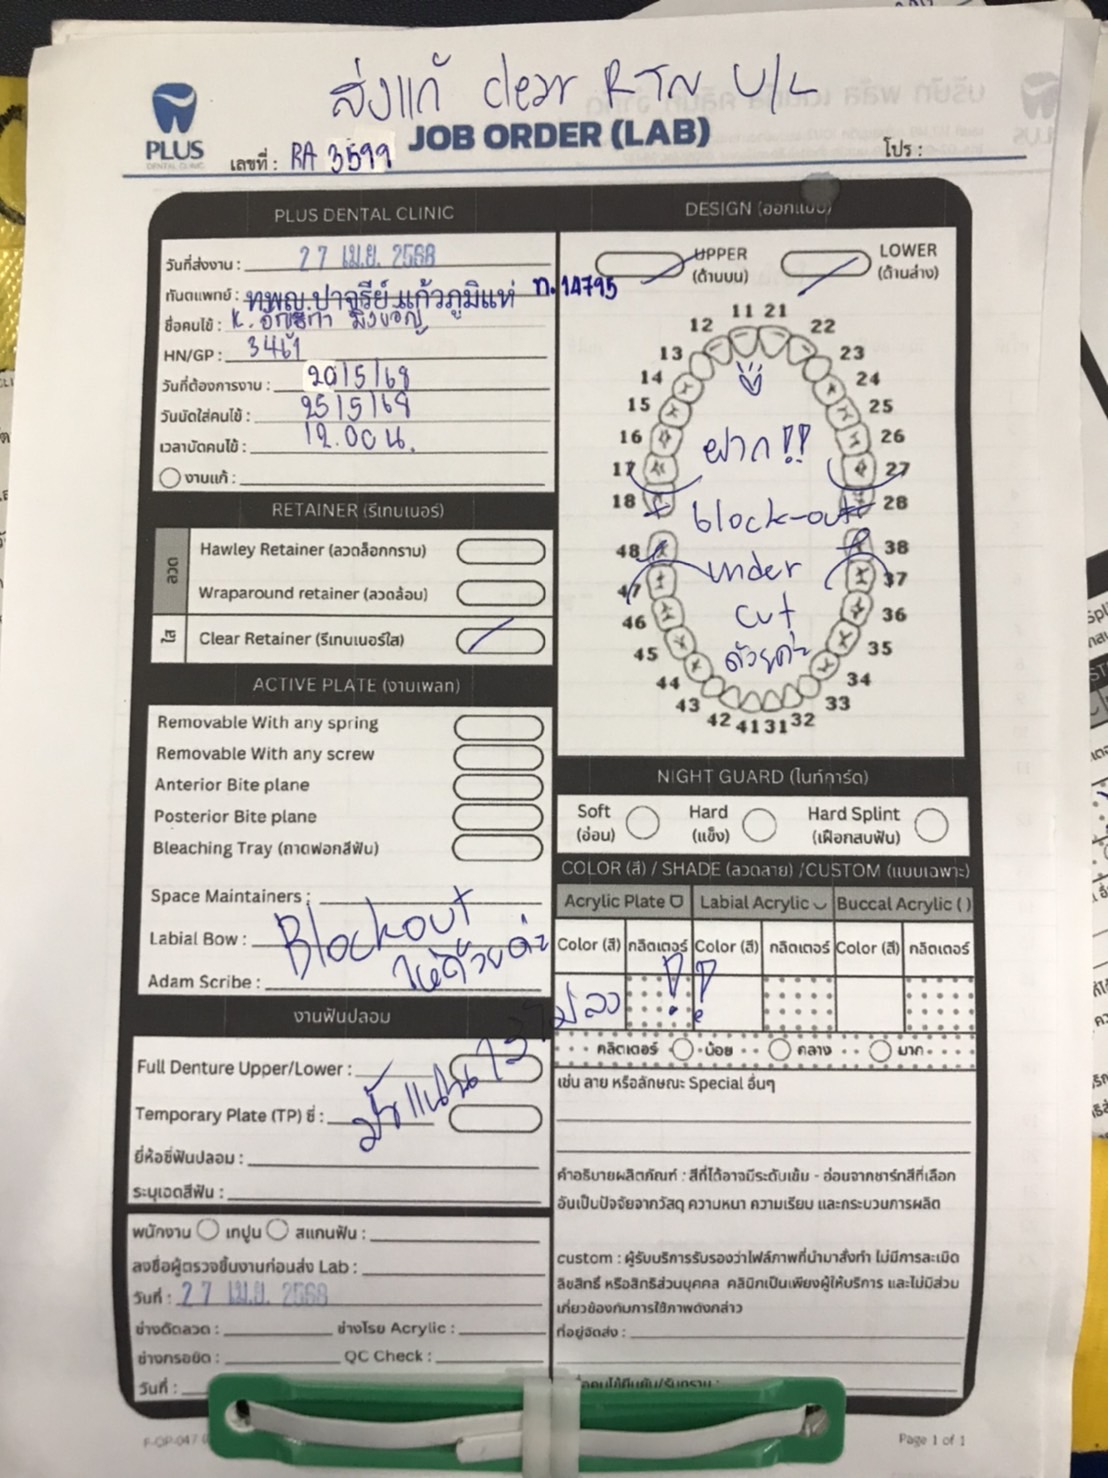 ส่งแก้ clear RTN U/L
PLUS
DENTAL CLINIC
JOB ORDER (LAB)
เลขที่ : RA 3599
โปร :
PLUS DENTAL CLINIC
วันที่ส่งงาน : 27 เม.ย. 2568
ทันตแพทย์ : ทพญ.ปาจรีย์ แก้วภูมิแห่ ท.14795
ชื่อคนไข้ : K.
HN/GP : 3461
วันที่ต้องการงาน : 20/5/68
วันนัดใส่คนไข้ : 25/5/68
เวลานัดคนไข้ : 12.00 น.
งานแก้ :
RETAINER (รีเทนเนอร์)
ลวด
Hawley Retainer (ลวดล็อกกราม)
Wraparound retainer (ลวดล้อม)
ใส
Clear Retainer (รีเทนเนอร์ใส)
ACTIVE PLATE (งานเพลท)
Removable With any spring
Removable With any screw
Anterior Bite plane
Posterior Bite plane
Bleaching Tray (ถาดฟอกสีฟัน)
Space Maintainers :
Labial Bow :
Adam Scribe :
Blockout
ให้ด้วยค่ะ
งานฟันปลอม
Full Denture Upper/Lower :
Temporary Plate (TP) ซี่ :
ยี่ห้อซี่ฟันปลอม :
ระบุเฉดสีฟัน :
พนักงาน เทปูน สแกนฟัน :
ลงชื่อผู้ตรวจชิ้นงานก่อนส่ง Lab :
วันที่ : 27 เม.ย. 2568
ช่างดัดลวด : ช่างโรย Acrylic :
ช่างกรอขัด : QC Check :
วันที่ :
F-OP-047
DESIGN (ออกแบบ)
UPPER
(ด้านบน)
LOWER
(ด้านล่าง)
11 21
12 22
13 23
14 24
15 25
16 26
17 27
18 28
48 38
47 37
46 36
45 35
44 34
43 33
42 41 31 32
ฝาก!!
block-out
under
cut
ด้วยค่ะ
NIGHT GUARD (ไนท์การ์ด)
Soft
(อ่อน)
Hard
(แข็ง)
Hard Splint
(เฝือกสบฟัน)
COLOR (สี) / SHADE (ลวดลาย) /CUSTOM (แบบเฉพาะ)
Acrylic Plate Labial Acrylic Buccal Acrylic ( )
Color (สี) กลิตเตอร์ Color (สี) กลิตเตอร์ Color (สี) กลิตเตอร์
!!
กลิตเตอร์ น้อย กลาง มาก
เช่น ลาย หรือลักษณะ Special อื่นๆ
คำอธิบายผลิตภัณฑ์ : สีที่ได้อาจมีระดับเข้ม - อ่อนจากชาร์ทสีที่เลือก
อันเป็นปัจจัยจากวัสดุ ความหนา ความเรียบ และกระบวนการผลิต
custom : ผู้รับบริการรับรองว่าไฟล์ภาพที่นำมาสั่งทำ ไม่มีการละเมิด
ลิขสิทธิ์ หรือสิทธิส่วนบุคคล คลินิกเป็นเพียงผู้ให้บริการ และไม่มีส่วน
เกี่ยวข้องกับการใช้ภาพดังกล่าว
ที่อยู่จัดส่ง :
Page 1 of 1